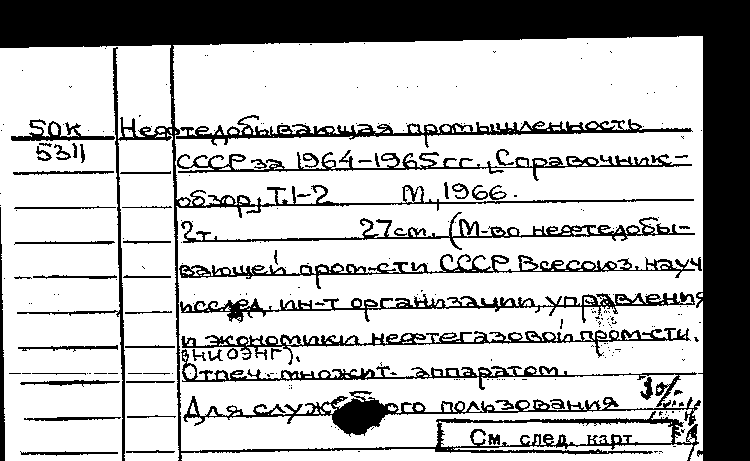 50К Нефтедобывающая промышленность
5311
СССР за 1964-1965 гг. [Справочник-
обзор]. Т.1-2 М., 1966.
2т. 27см. (М-во нефтедобы-
вающей пром-сти СССР. Всесоюз. науч
исслед. ин-т организации, управления
и экономики нефтегазовой пром-сти.
ВНИОЭНГ).
Отпеч. множит. аппаратом.
Для служебного пользования
См. след. карт.